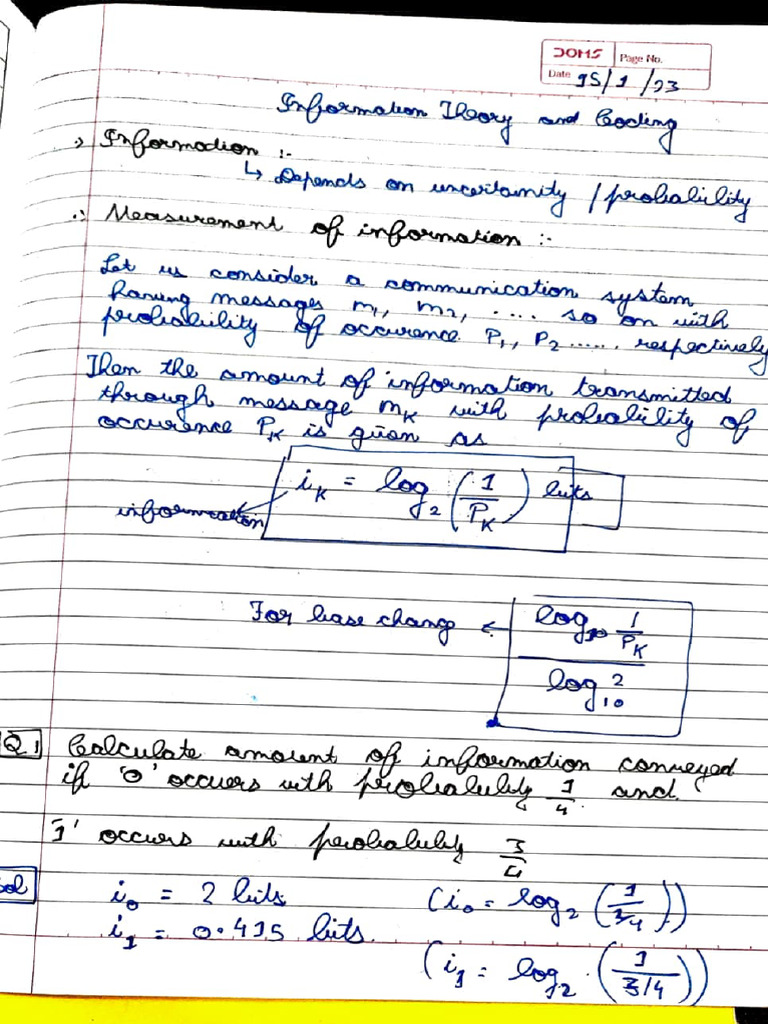 DOMS Page No.
Date 15/1/23
Information Theory and Coding
Information :-
↳ Depends on uncertainity / probability
∴ Measurement of information :-
Let us consider a communication system
having messages m₁, m₂, .... so on with
probability of occurence P₁, P₂ ..... respectively
Then the amount of information transmitted
through message mK with probability of
occurence PK is given as
iK = log₂ (1/PK) bits
information
For base change ← log₁₀ 1/PK
log₁₀ 2
Q.1 Calculate amount of information conveyed
if '0' occurs with probability 1/4 and
'1' occurs with probability 3/4
Sol i₀ = 2 bits (i₀ = log₂ (1/3/4))
i₁ = 0.415 bits. (i₁ = log₂ (1/3/4))